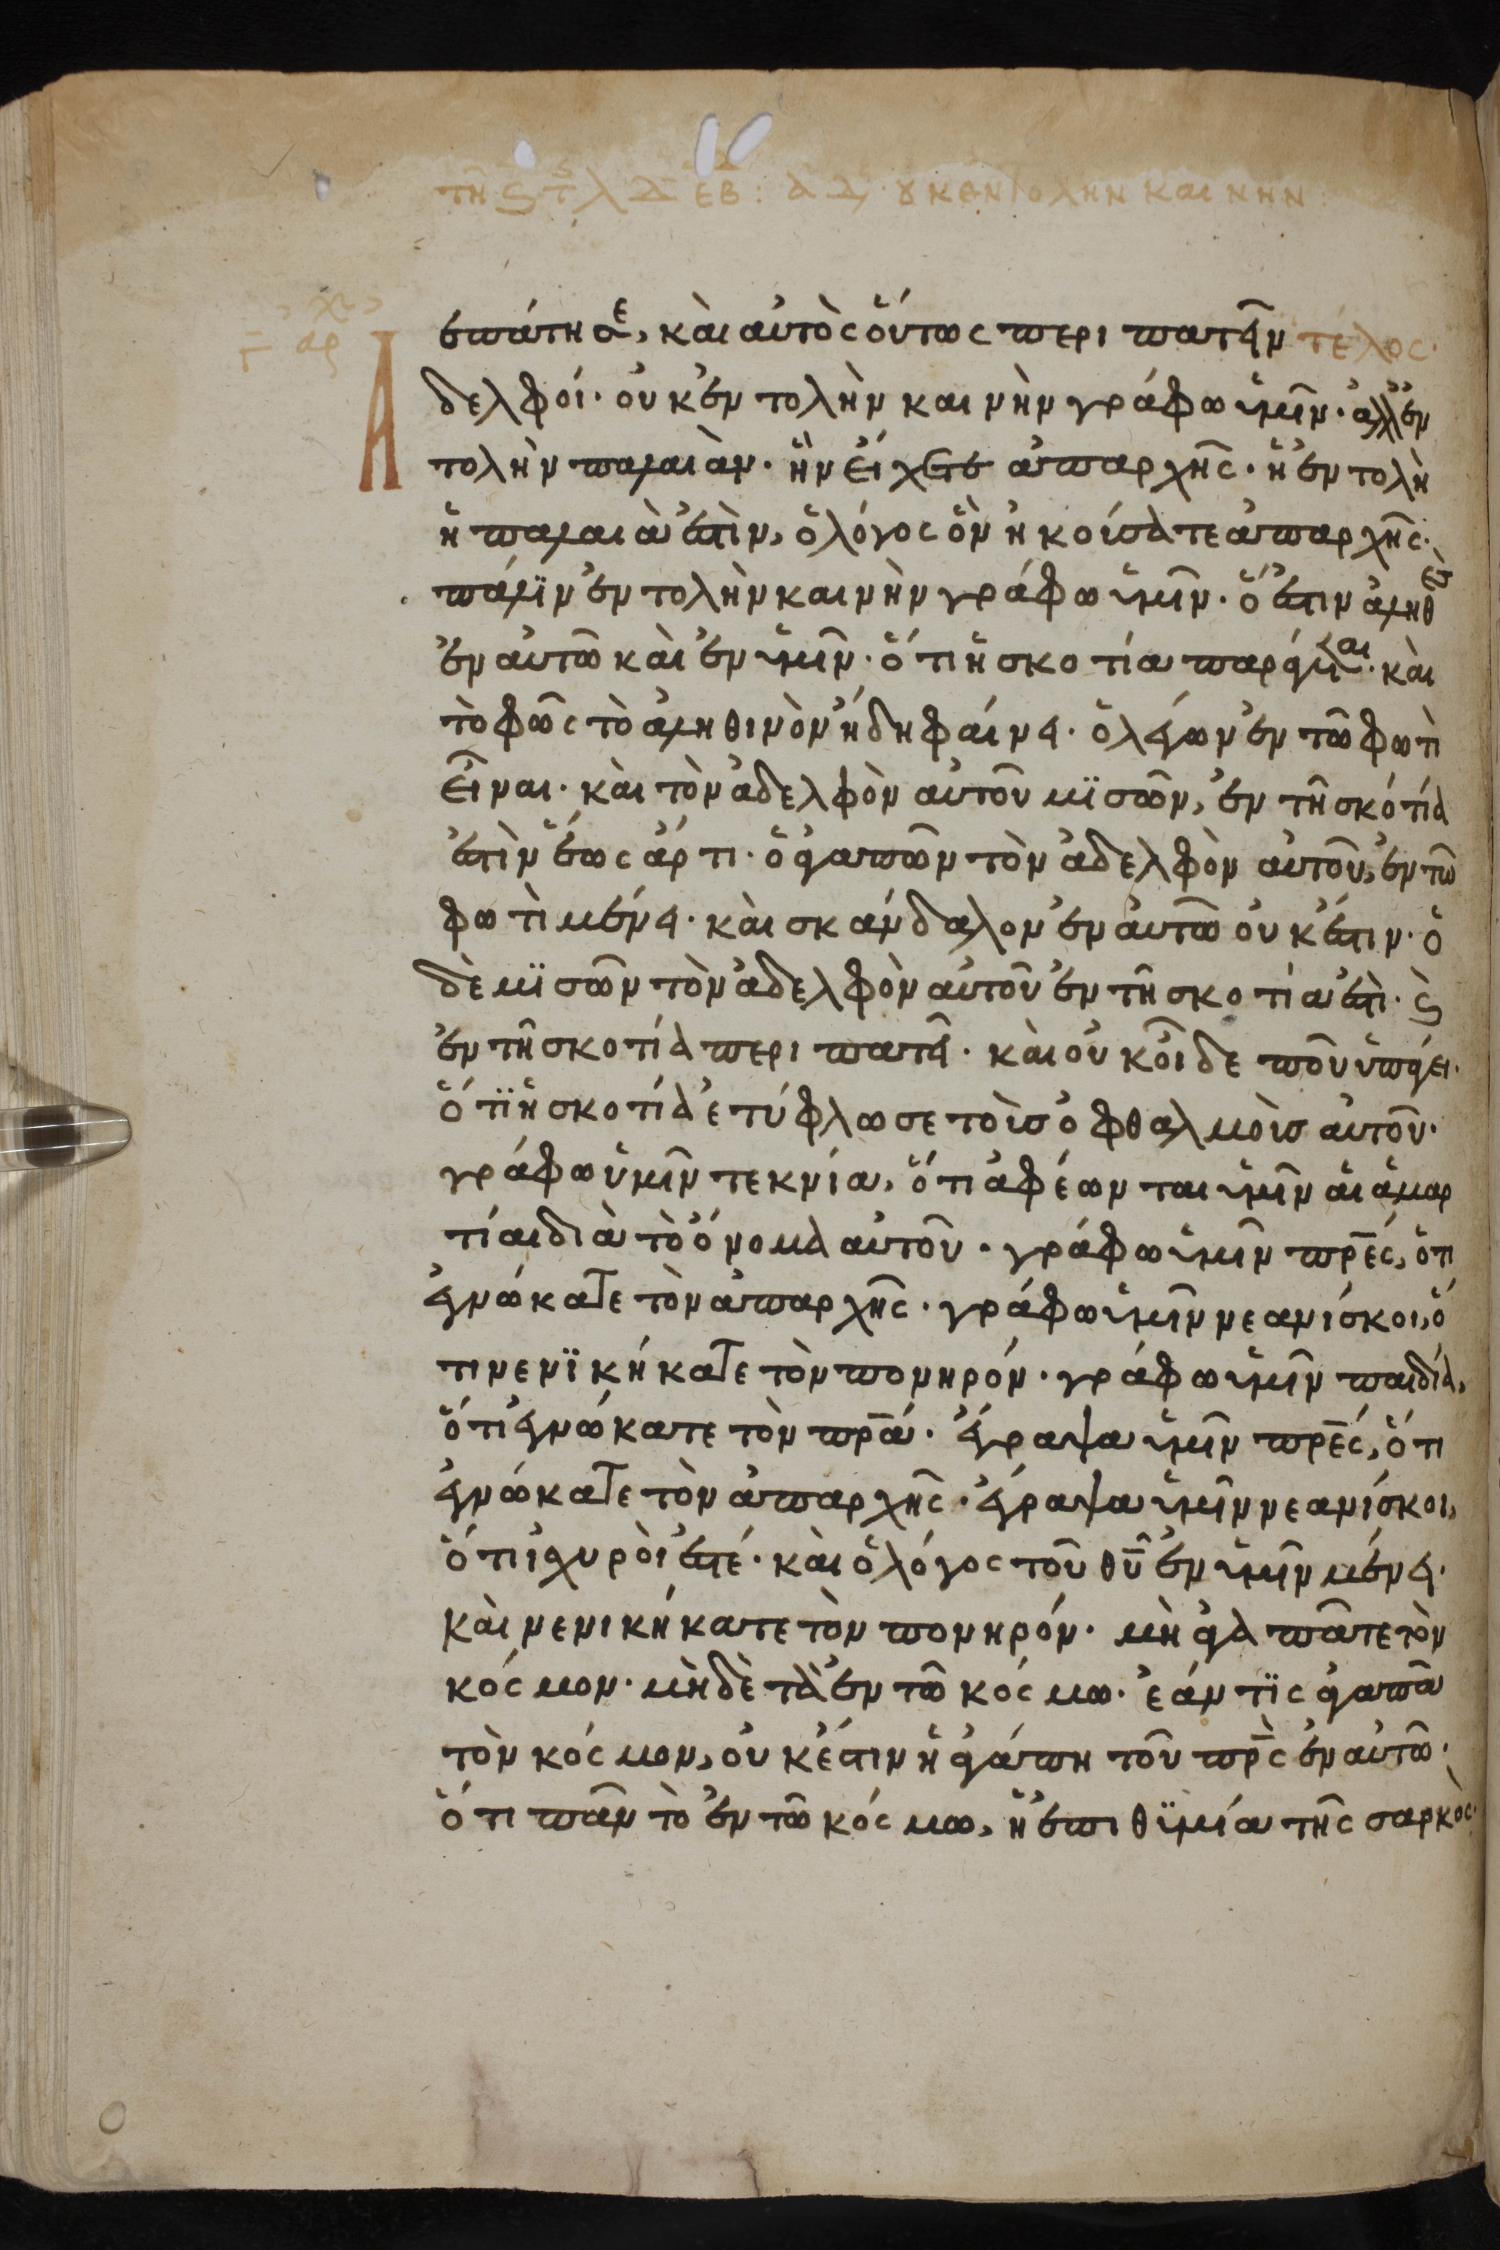 τῆ ϛ τ λδ εβ: ἀδ, ουκ εντολην καινην:
γ αρχ
επάτησε, καὶ αὐτὸς οὕτως περιπατεῖν τέλος.
Αδελφοί· οὐκ ἐντολὴν καινὴν γράφω ὑμῖν· ἀλλ ἐν
τολὴν παλαιὰν· ἣν εἴχετε ἀπαρχῆς· ἡ ἐντολὴ
ἡ παλαιὰ ἐστὶν, ὁ λόγος ὃν ἠκούσατε ἀπαρχῆς·
πάλϊν ἐντολὴν καινὴν γράφω ὑμῖν· ὅ ἐστιν ἀληθὲς
ἐν αὐτῶ καὶ ἐν ὑμῖν· ὅτι ἡ σκοτία παράγεται· καὶ
τὸ φῶς τὸ ἀληθινὸν ἤδη φαίνει· ὁ λέγων ἐν τῶ φωτὶ
εἶναι· καὶ τὸν ἀδελφὸν αὐτοῦ μϊσῶν, ἐν τῆ σκότία
ἐστὶν ἕως ἄρτι· ὁ ἀγαπῶν τὸν ἀδελφὸν αὐτοῦ, ἐν τῶ
φωτὶ μένει· καὶ σκάνδαλον ἐν αὐτῶ οὐκ ἔστιν· ὁ
δὲ μϊσῶν τὸν ἀδελφὸν αὐτοῦ ἐν τῆ σκοτία ἐστὶ· ϗ
ἐν τῆ σκοτία περιπατεῖ· καὶ οὐκ οἶδε ποῦ ὑπάγει·
ὅτϊ ἡ σκοτία ἐτύφλωσε τοὺς ὀφθαλμοὺς αὐτοῦ·
γράφω ὑμῖν τεκνία, ὅτι ἀφέωνται ὑμῖν αἱ ἁμαρ
τίαι διὰ τὸ ὄνομα αὐτοῦ· γράφω ὑμῖν πρες, ὅτι
ἐγνώκατε τὸν ἀπαρχῆς· γράφω ὑμῖν νεανίσκοι, ὅ
τι νενϊκήκατε τὸν πονηρόν· γράφω ὑμῖν παιδία,
ὅτι ἐγνώκατε τὸν πρα· ἔγραψα ὑμῖν πρες, ὅτι
ἐγνώκατε τὸν ἀπαρχῆς· ἔγραψα ὑμῖν νεανίσκοι,
ὅτι ἰσχυροὶ ἐστέ· καὶ ὁ λόγος τοῦ θυ ἐν ὑμῖν μένει·
καὶ νενικήκατε τὸν πονηρόν· μὴ ἀγαπᾶτε τὸν
κόσμον· μὴδὲ τὰ ἐν τῶ κόσμω· ἐάν τϊς ἀγαπᾶ
τὸν κόσμον, οὐκ ἔστιν ἡ ἀγάπη τοῦ πρς ἐν αὐτῶ·
ὅτι πᾶν τὸ ἐν τῶ κόσμω, ἡ ἐπιθϋμία τῆς σαρκὸς·